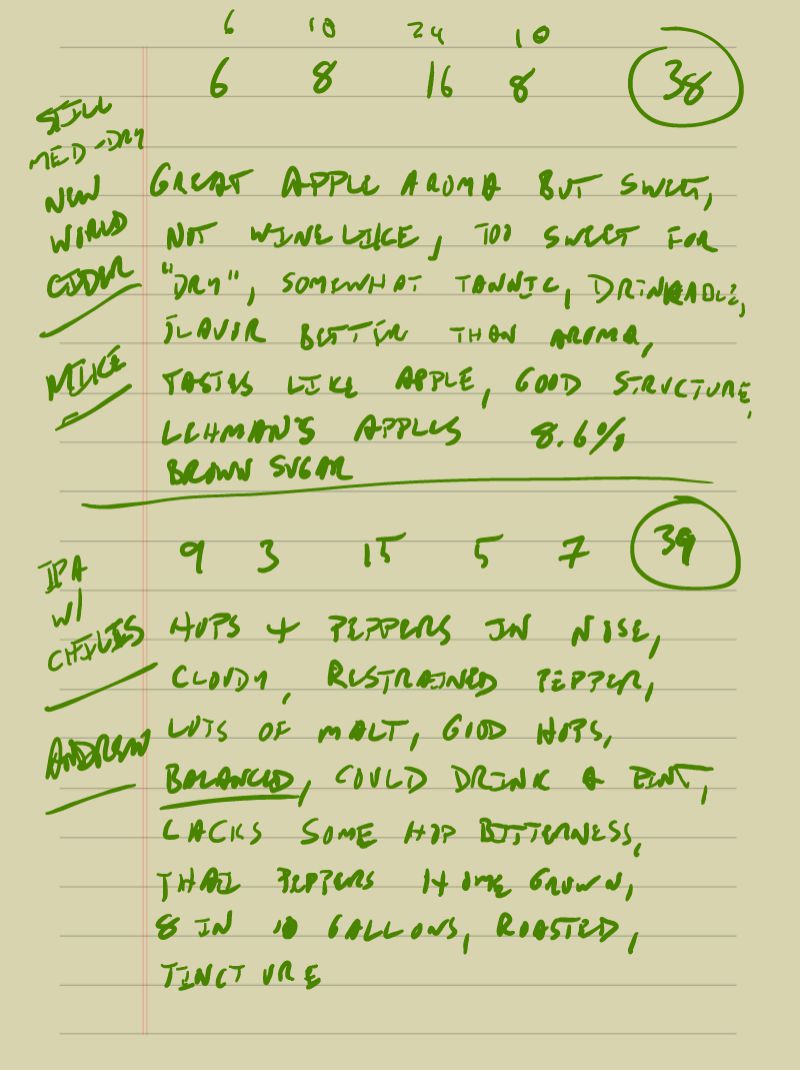 6 10 24 10
6 8 16 8 38
STILL
MED-DRY
NEW
WORLD
CIDER
MIKE
GREAT APPLE AROMA BUT SWEET,
NOT WINE LIKE, TOO SWEET FOR
"DRY", SOMEWHAT TANNIC, DRINKABLE,
FLAVOR BETTER THAN AROMA,
TASTES LIKE APPLE, GOOD STRUCTURE,
LEHMAN'S APPLES 8.6%
BROWN SUGAR
9 3 15 5 7 39
IPA
W/
CHILIES
ANDREW
HOPS + PEPPERS IN NOSE,
CLOUDY, RESTRAINED PEPPER,
LOTS OF MALT, GOOD HOPS,
BALANCED, COULD DRINK A PINT,
LACKS SOME HOP BITTERNESS,
THAI PEPPERS HOME GROWN,
8 IN 10 GALLONS, ROASTED,
TINCTURE